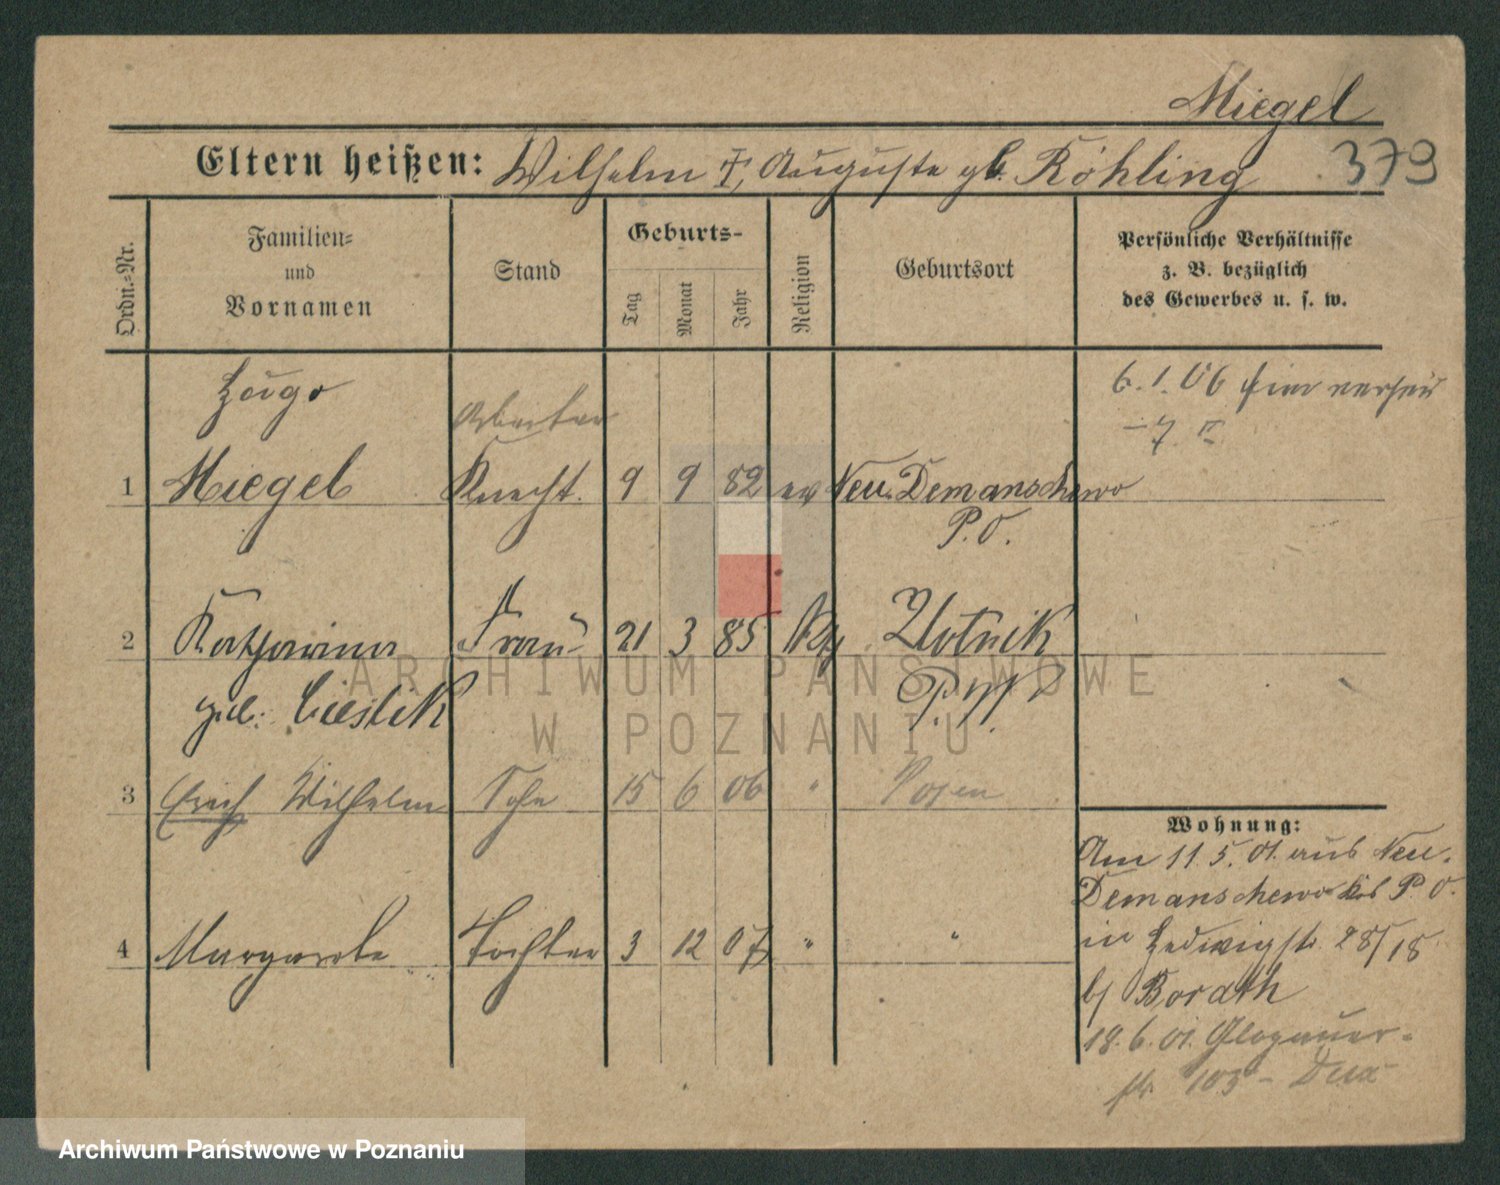 Miegel
Eltern heißen: Wilhelm †, Auguste gb. Röhling 379
Ordn.=Nr.
Familien=
und
Vornamen
Stand
Geburts-
Tag
Monat
Jahr
Religion
Geburtsort
Persönliche Verhältnisse
z. B. bezüglich
des Gewerbes u. s. w.
Hugo
Arbeiter
6. 1. 06
1 Miegel Knecht. 9 9 82 ev Neu. Demanschewo
P. O.
2 Katharina Frau 21 3 85 Kg Zlotnik
geb. Cieslik P. W.
3 Erich Wilhelm Sohn 15 6 06 " Posen
4 Margarete Tochter 3 12 07 " "
Wohnung:
Am 11. 5. 01. aus Neu.
Demanschewo P. O.
in Hedwigstr. 28/18
b/ Borath
18. 6. 01. Glogauer-
str. 103-
ARCHIWUM PAŃSTWOWE
W POZNANIU
Archiwum Państwowe w Poznaniu